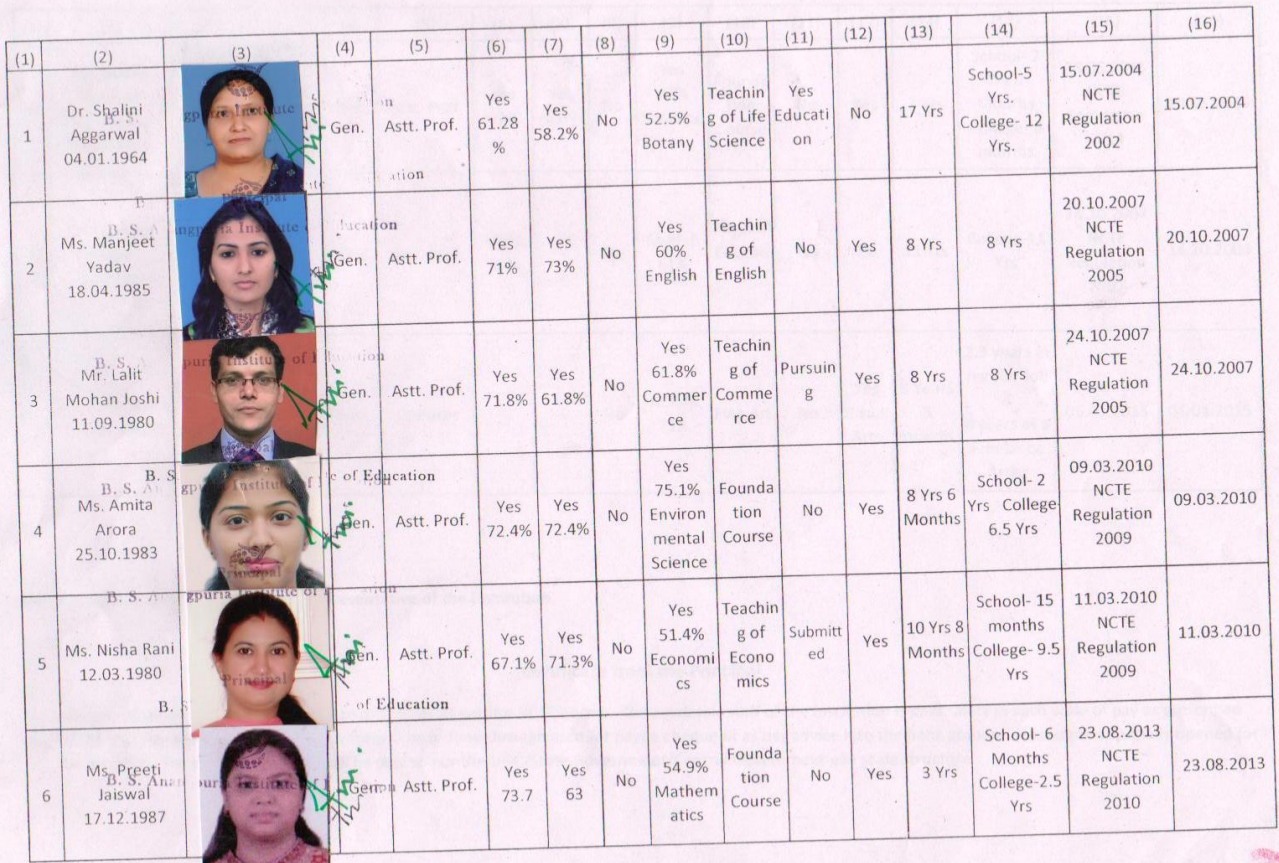 (1) (2) (3) (4) (5) (6) (7) (8) (9) (10) (11) (12) (13) (14) (15) (16)
1
Dr. Shalini
Aggarwal
04.01.1964
Gen.
Astt. Prof.
Yes
61.28
%
Yes
58.2%
No
Yes
52.5%
Botany
Teachin
g of Life
Science
Yes
Educati
on
No
17 Yrs
School-5
Yrs.
College- 12
Yrs.
15.07.2004
NCTE
Regulation
2002
15.07.2004
Principal
2
Ms. Manjeet
Yadav
18.04.1985
Gen.
Astt. Prof.
Yes
71%
Yes
73%
No
Yes
60%
English
Teachin
g of
English
No
Yes
8 Yrs
8 Yrs
20.10.2007
NCTE
Regulation
2005
20.10.2007
3
Mr. Lalit
Mohan Joshi
11.09.1980
Gen.
Astt. Prof.
Yes
71.8%
Yes
61.8%
No
Yes
61.8%
Commer
ce
Teachin
g of
Comme
rce
Pursuin
g
Yes
8 Yrs
8 Yrs
24.10.2007
NCTE
Regulation
2005
24.10.2007
B. S
of Education
4
Ms. Amita
Arora
25.10.1983
Gen.
Astt. Prof.
Yes
72.4%
Yes
72.4%
No
Yes
75.1%
Environ
mental
Science
Founda
tion
Course
No
Yes
8 Yrs 6
Months
School- 2
Yrs College
6.5 Yrs
09.03.2010
NCTE
Regulation
2009
09.03.2010
Principal
5
Ms. Nisha Rani
12.03.1980
Gen.
Astt. Prof.
Yes
67.1%
Yes
71.3%
No
Yes
51.4%
Economi
cs
Teachin
g of
Econo
mics
Submitt
ed
Yes
10 Yrs 8
Months
School- 15
months
College- 9.5
Yrs
11.03.2010
NCTE
Regulation
2009
11.03.2010
Principal
B. S
of Education
6
Ms. Preeti
Jaiswal
17.12.1987
Gen.
Astt. Prof.
Yes
73.7
Yes
63
No
Yes
54.9%
Mathem
atics
Founda
tion
Course
No
Yes
3 Yrs
School- 6
Months
College-2.5
Yrs
23.08.2013
NCTE
Regulation
2010
23.08.2013